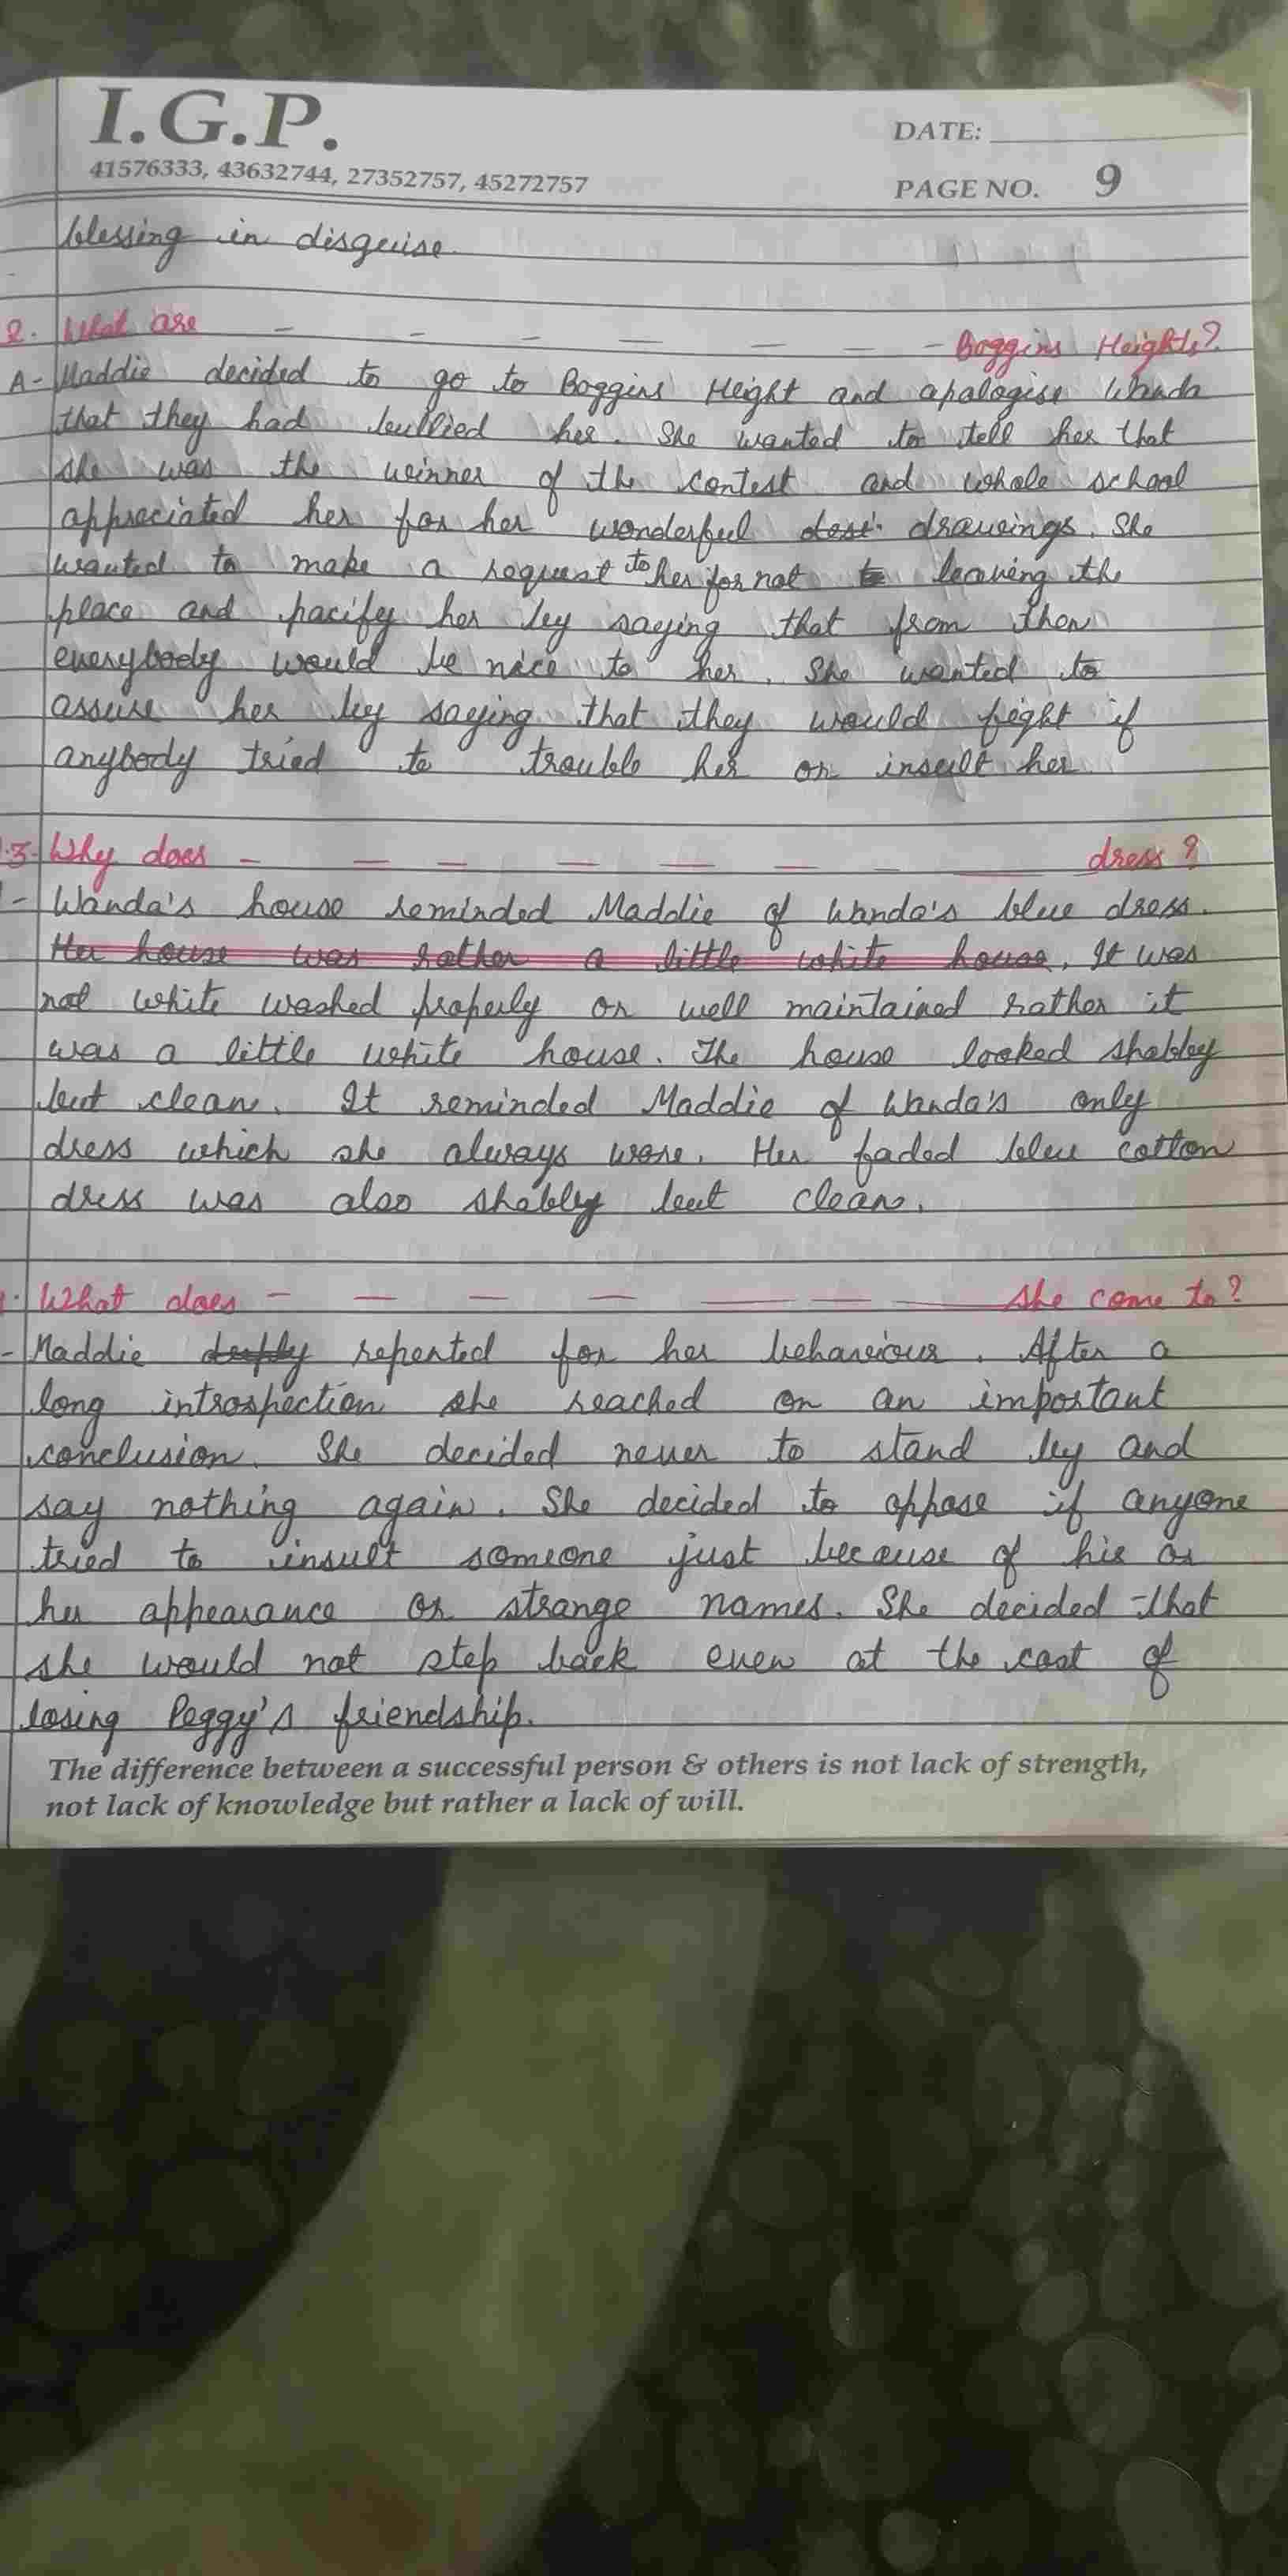 I.G.P.
41576333, 43632744, 27352757, 45272757
DATE:
PAGE NO. 9
blessing in disguise.
2. What are - - - - - - - Boggins Heights?
A- Maddie decided to go to Boggins Height and apologise Wanda
that they had bullied her. She wanted to tell her that
she was the winner of the contest and whole school
appreciated her for her wonderful desi drawings. She
wanted to make a request to her for not to leaving the
place and pacify her by saying that from then
everybody would be nice to her. She wanted to
assure her by saying that they would fight if
anybody tried to trouble her or insult her
.3- Why does - - - - - - - - dress?
- Wanda's house reminded Maddie of Wanda's blue dress.
Her house was rather a little white house. It was
not white washed properly or well maintained rather it
was a little white house. The house looked shabby
but clean. It reminded Maddie of Wanda's only
dress which she always wore. Her faded blue cotton
dress was also shabby but clean.
. What does - - - - - - - she come to?
- Maddie deeply repented for her behaviour. After a
long introspection she reached on an important
conclusion. She decided never to stand by and
say nothing again. She decided to oppose if anyone
tried to insult someone just because of his or
her appearance or strange names. She decided that
she would not step back even at the cost of
losing Peggy's friendship.
The difference between a successful person & others is not lack of strength,
not lack of knowledge but rather a lack of will.